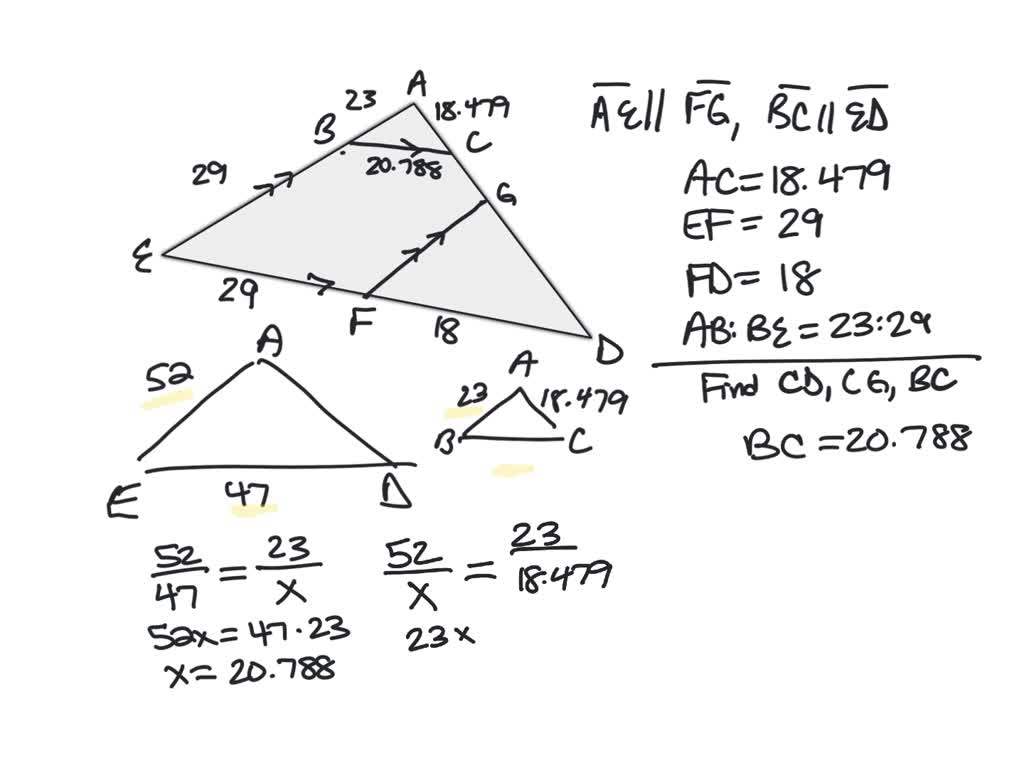 A
23
18.479
B
C
20.788
29
G
E
29
F
18
D
AE // FG, BC // ED
AC = 18.479
EF = 29
FD = 18
AB:BE = 23:29
Find CD, CG, BC
BC = 20.788
A
52
E
47
D
A
23
18.479
B
C
52/47 = 23/x
52x = 47·23
x = 20.788
52/x = 23/18.479
23x